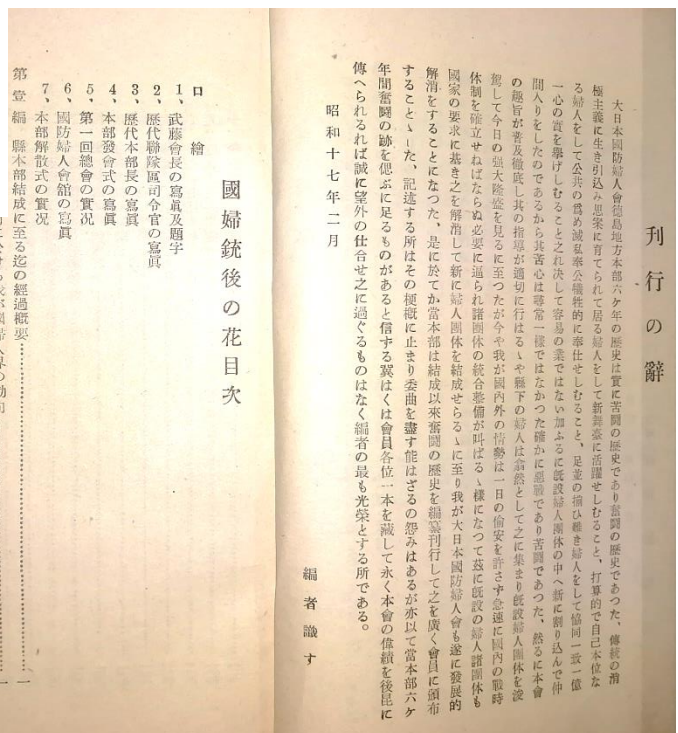 刊行の辭
大日本國防婦人會德島地方本部六ケ年の歷史は實に苦闘の歷史であり奮闘の歷史であつた、傳統の消
極主義に生き引込み思案に育てられて居る婦人をして新舞臺に活躍せしむること、打算的で自己本位な
る婦人をして公共の爲め滅私奉公犧牲的に奉仕せしむること、足並の揃ひ難き婦人をして協同一致一億
一心の實を擧げしむること之れ決して容易の業ではない加ふるに旣設婦人團体の中へ新に割り込んで仲
間入りをしたのであるから其苦心は尋常一樣ではなかつた確かに惡戰であり苦闘であつた、然るに本會
の趣旨が普及徹底し其の指導が適切に行はるゝや縣下の婦人は翕然として之に集まり旣設婦人團体を凌
駕して今日の强大隆盛を見るに至つたが今や我が國內外の情勢は一日の偷安を許さず急速に國內の戰時
体制を確立せねばならぬ必要に逼られ諸團体の統合整備が叫ばるゝ樣になつて玆に旣設の婦人諸團体も
國家の要求に基き之を解消して新に婦人團体を結成せらるゝに至り我が大日本國防婦人會も遂に發展的
解消をすることになつた、是に於てか當本部は結成以來奮闘の歷史を編纂刊行して之を廣く會員に頒布
することゝした、記述する所はその梗槪に止まり委曲を盡す能はざるの怨みはあるが亦以て當本部六ケ
年間奮闘の跡を偲ぶに足るものがあると信ずる冀はくは會員各位一本を藏して永く本會の偉績を後昆に
傳へられるれば誠に望外の仕合せ之に過ぐるものはなく編者の最も光榮とする所である。
昭和十七年二月
編者識す
國婦銃後の花目次
口繪
1、武藤會長の寫眞及題字
2、歷代聯隊區司令官の寫眞
3、歷代本部長の寫眞
4、本部發會式の寫眞
5、第一回總會の實况
6、國防婦人會館の寫眞
7、本部解散式の實况
第壹編 縣本部結成に至る迄の經過槪要……一